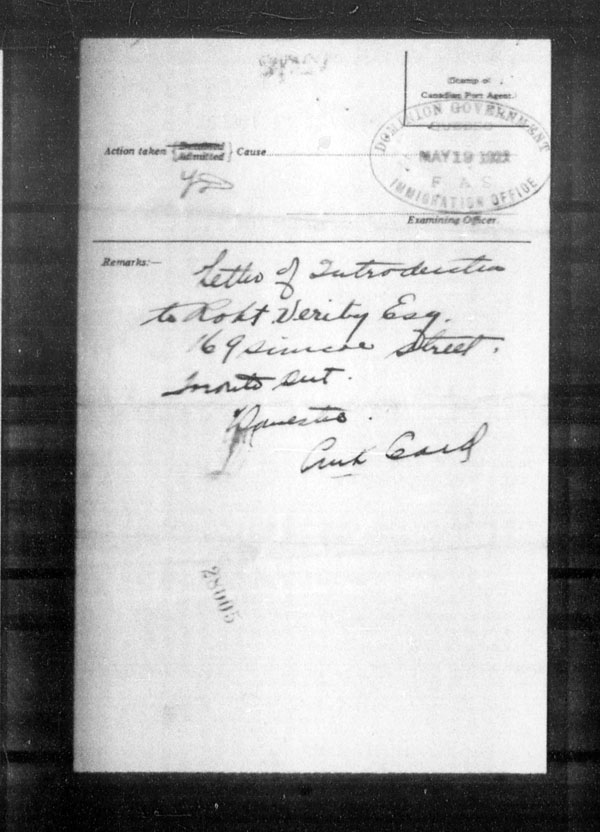 (Stamp of
Canadian Port Agent.)
DOMINION GOVERNMENT
QUEBEC
MAY 19 1921
F A S
IMMIGRATION OFFICE
Action taken { Detained Admitted } Cause
Examining Officer.
Remarks:—
Letter of Introduction
to Robt Verity Esq.
169 Simcoe Street.
Toronto Ont.
Domestic.
Card
28005